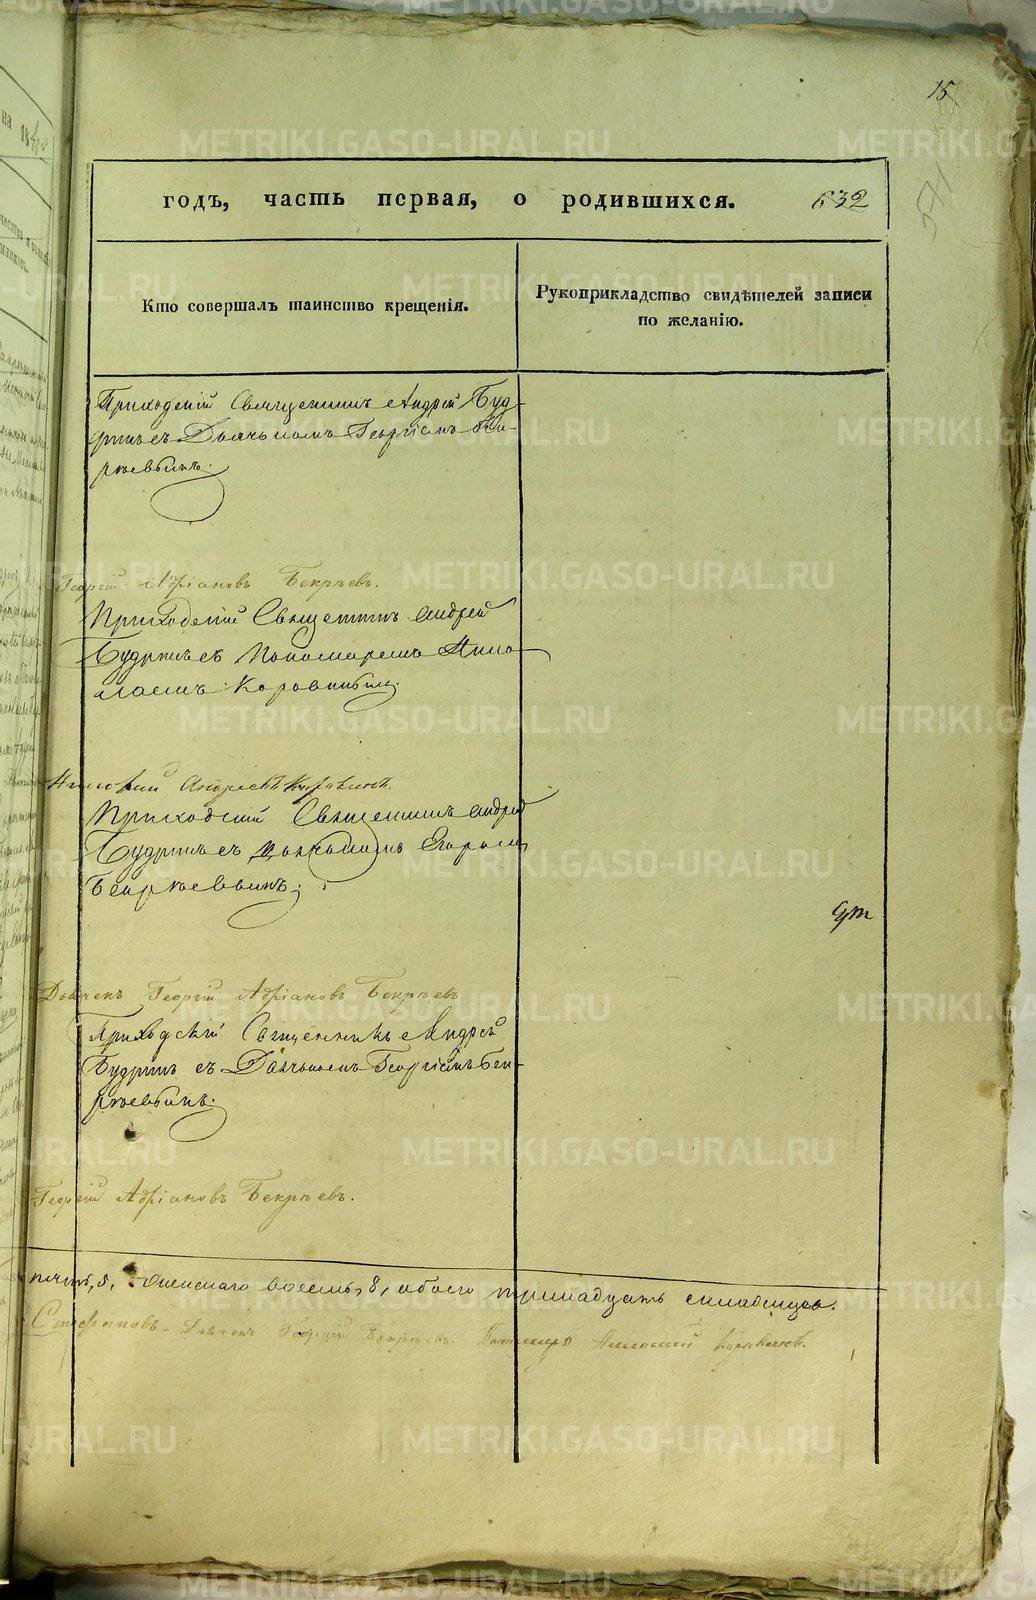 15
571
годъ, часть первая, о родившихся. 632
Кто совершалъ таинство крещенія.
Рукоприкладство свидѣтелей записи
по желанію.
Приходскій Священникъ Андрей Буд-
ринъ съ Дьячкомъ Георгіемъ Бек-
рѣевымъ.
Георгій Адріановъ Бекрѣевъ.
Приходскій Священникъ Андрей
Будринъ съ Пономаремъ Нико-
лаемъ Коровинымъ.
Николай Андреевъ Коровинъ.
Приходскій Священникъ Андрей
Будринъ съ Дьячкомъ Егоромъ
Бекрѣевымъ.
Дьячекъ Георгій Адріановъ Бекрѣевъ
Приходскій Священникъ Андрей
Будринъ съ Дьячкомъ Георгіемъ Бек-
рѣевымъ.
Георгій Адріановъ Бекрѣевъ.
пять, 5, женскаго восемь, 8, обоего тринадцать
Стефановъ Дьячекъ Георгій Бекрѣевъ. Пономарь Николай Коровинъ.
METRIKI.GASO-URAL.RU